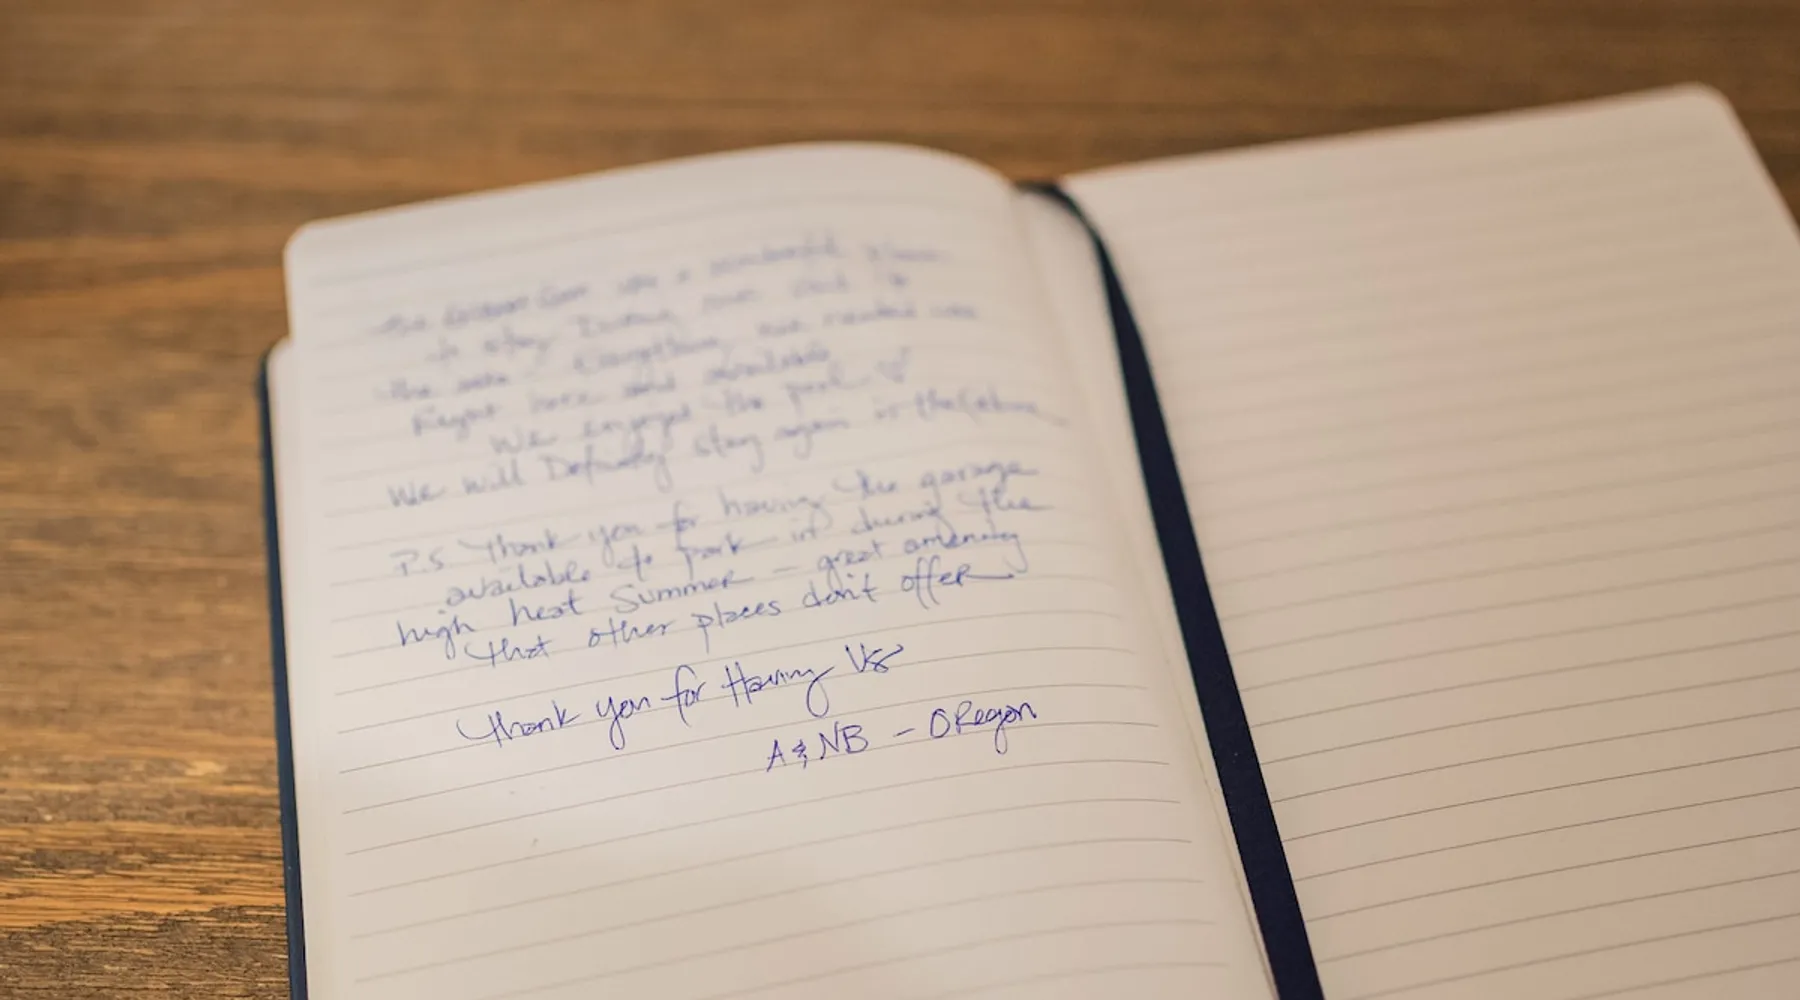 was a wonderful place
to stay During our visit to
the area. Everything we needed was
Right here and available
We enjoyed the pool
We will Definitely stay again in the future
P.S. Thank you for having the garage
available to park in during the
high heat Summer - great amenity
that other places don't offer
Thank you for Having Us
A & NB - ORegon